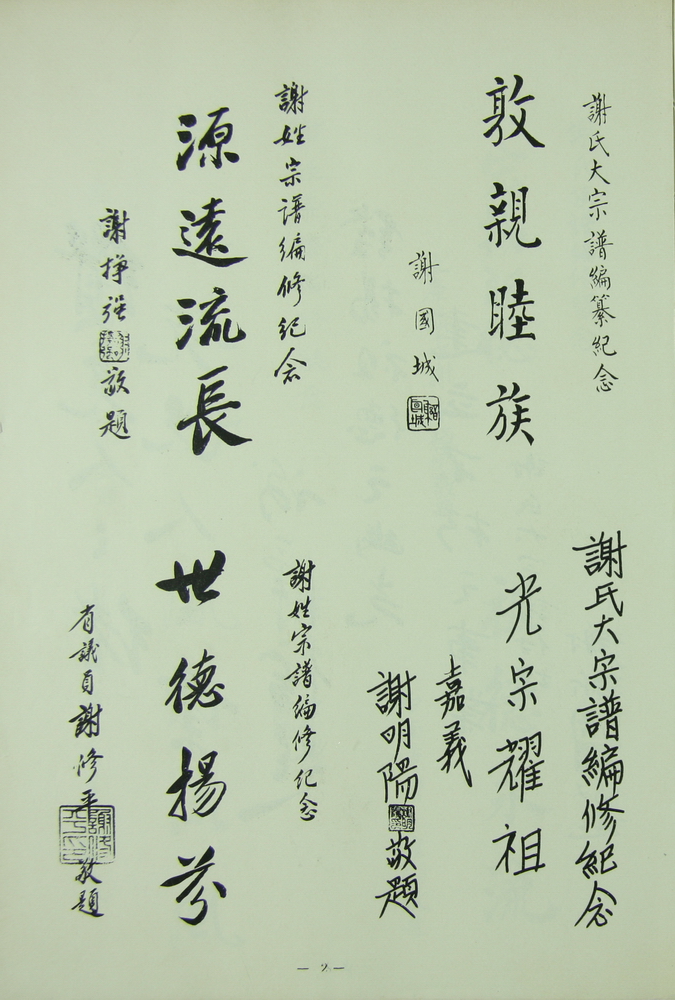 謝氏大宗譜編纂紀念
敦親睦族
謝國城
謝姓宗谱编修纪念
源遠流長
謝掙強
敬題
謝氏大宗譜編修紀念
光宗耀祖
嘉義
謝明陽
敬題
謝姓宗譜编修纪念
世德揚芬
省議員謝修平
敬題
— 2 —